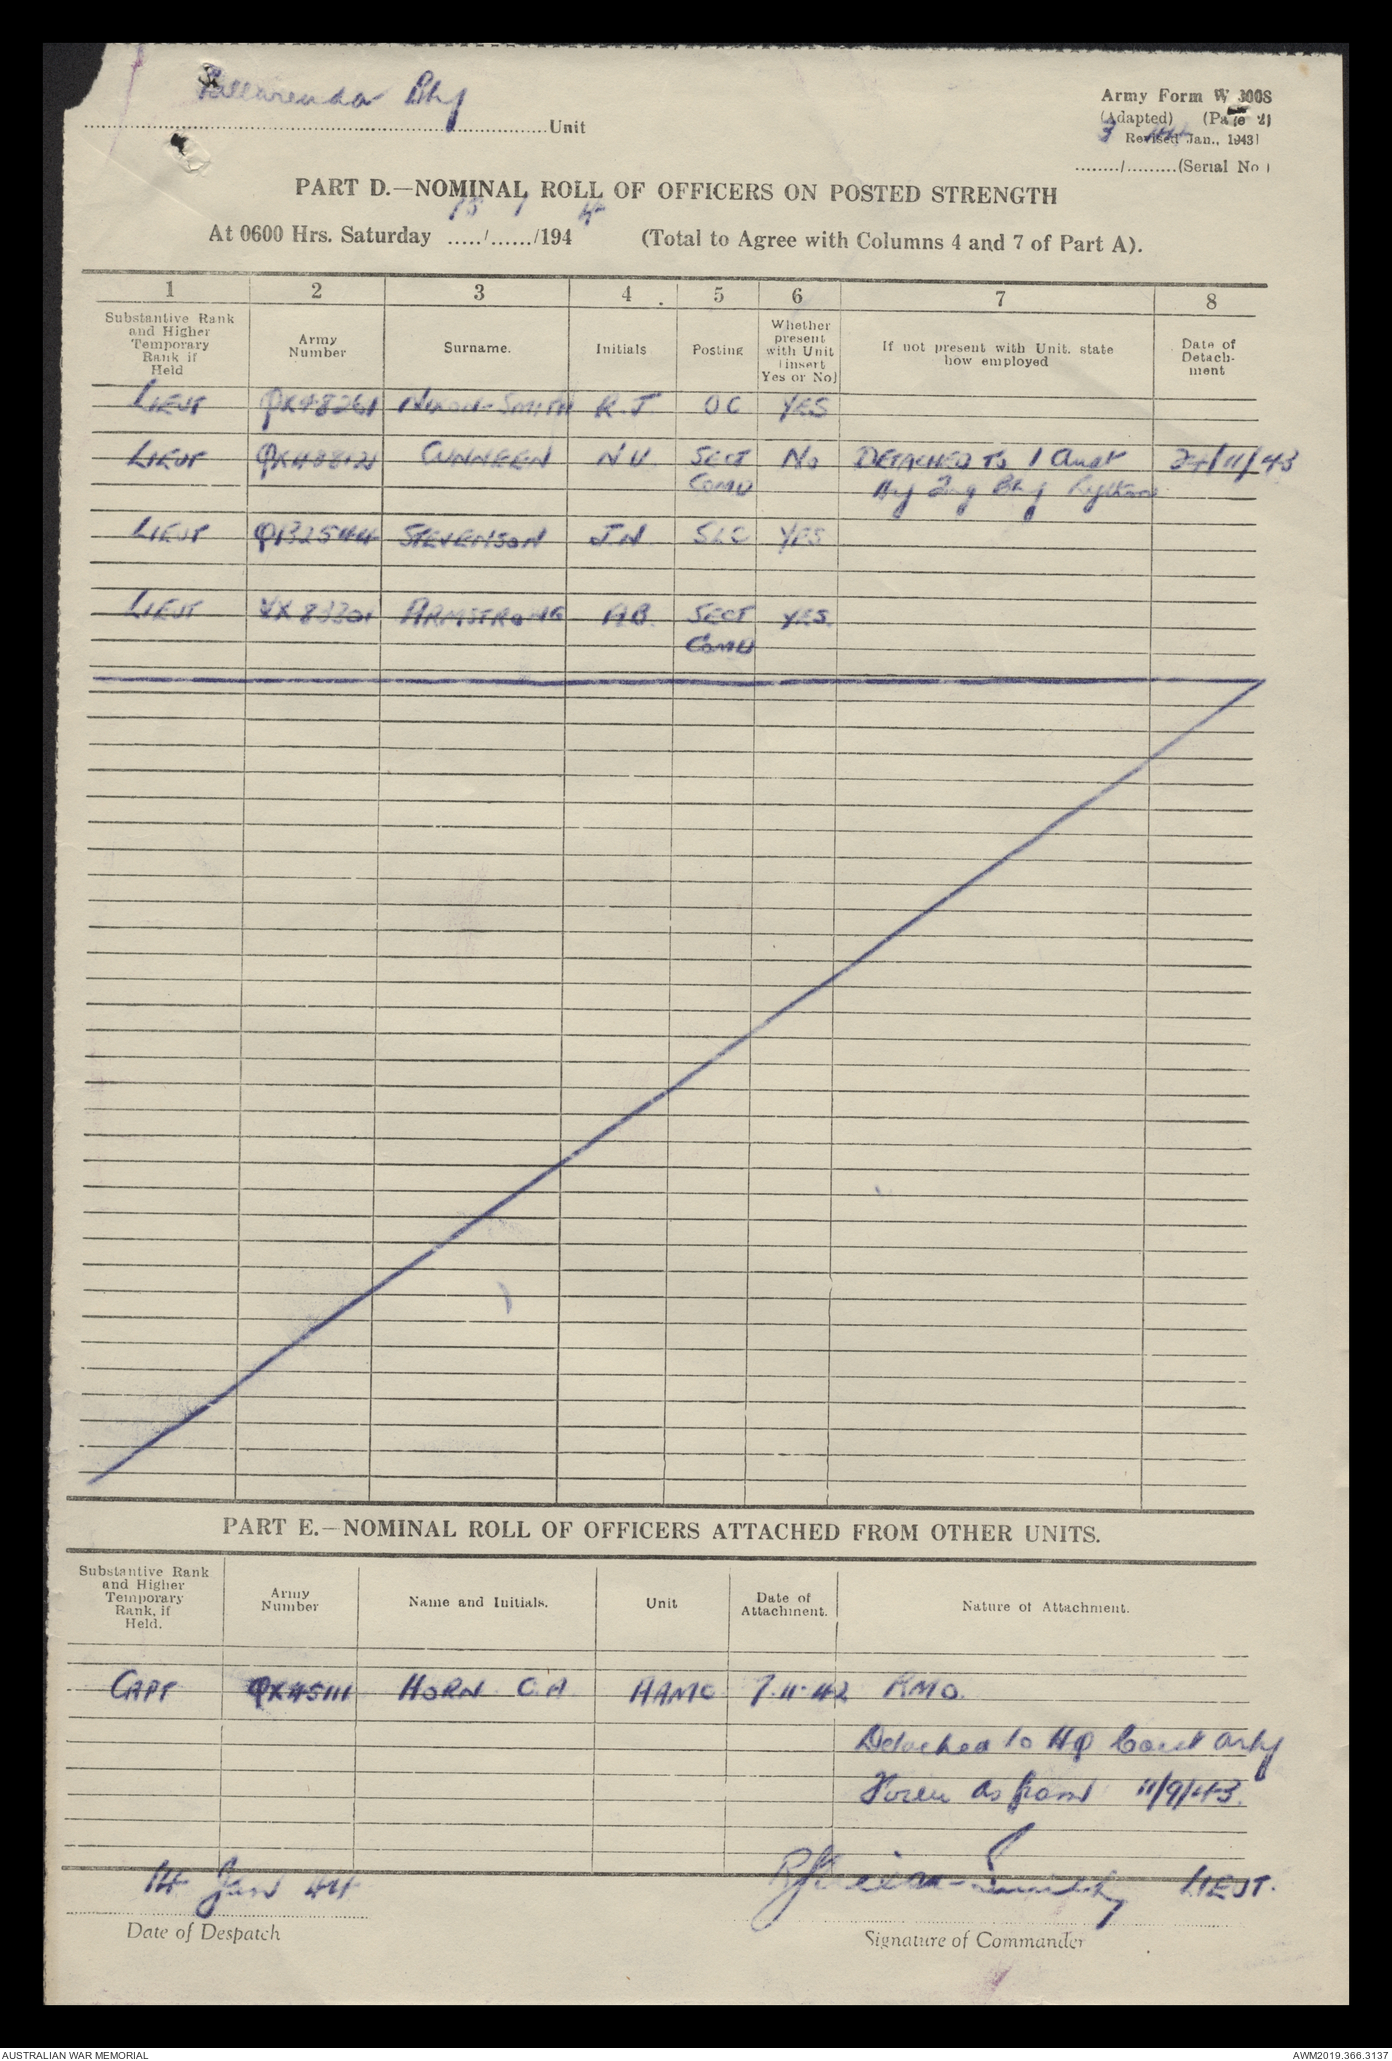 Pallarenda Bty
Unit
Army Form W 3008
(Adapted) (Page 2)
3 Revised Jan., 1943)
......../.........(Serial No )
PART D.—NOMINAL ROLL OF OFFICERS ON POSTED STRENGTH
At 0600 Hrs. Saturday 15/1/1944 (Total to Agree with Columns 4 and 7 of Part A).
1 2 3 4 5 6 7 8
Substantive Rank and Higher Temporary Rank if Held
Army Number
Surname.
Initials
Posting
Whether present with Unit (insert Yes or No)
If not present with Unit. state how employed
Date of Detachment
LIEUT QX48261 NIXON-SMITH R.J OC YES
LIEUT CUNNEEN N.V. SECT No DETACHED TO 1 Aust 24/11/43
COMD Hy Bty
LIEUT STEVENSON J.N. SLC YES
LIEUT ARMSTRONG A.B. SECT YES.
COMD
PART E.—NOMINAL ROLL OF OFFICERS ATTACHED FROM OTHER UNITS.
Substantive Rank and Higher Temporary Rank, if Held.
Army Number
Name and Initials.
Unit
Date of Attachment.
Nature of Attachment.
CAPT QX45111 HORN C.A. AAMC 7.11.42 RMO.
Detached to HQ Coast Arty
as from 11/9/43.
14 Jan 44 LIEUT.
Date of Despatch
Signature of Commander
AUSTRALIAN WAR MEMORIAL
AWM2019.366.3137